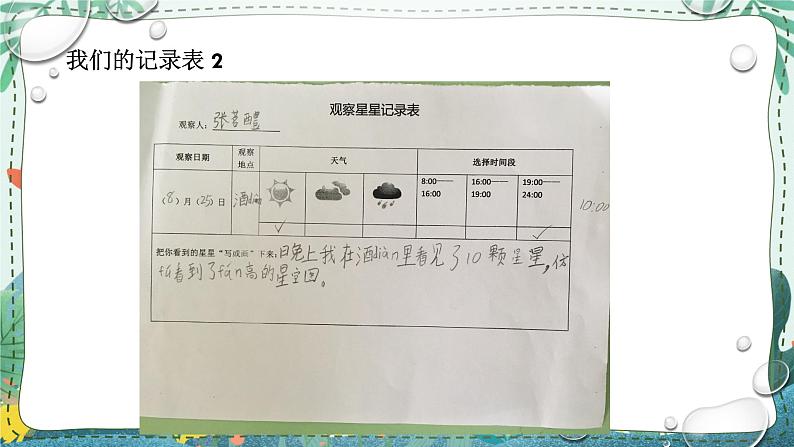 我们的记录表 2
观察星星记录表
观察人：张茗醴
观察日期 观察地点 天气 选择时间段
（8）月（25）日 酒diàn
8:00——16:00 16:00——19:00 19:00——24:00 10:00
✓ ✓
把你看到的星星“写或画”下来：日免上我在酒diàn里看见了10颗星星，仿
fú看到了fán高的星空图。